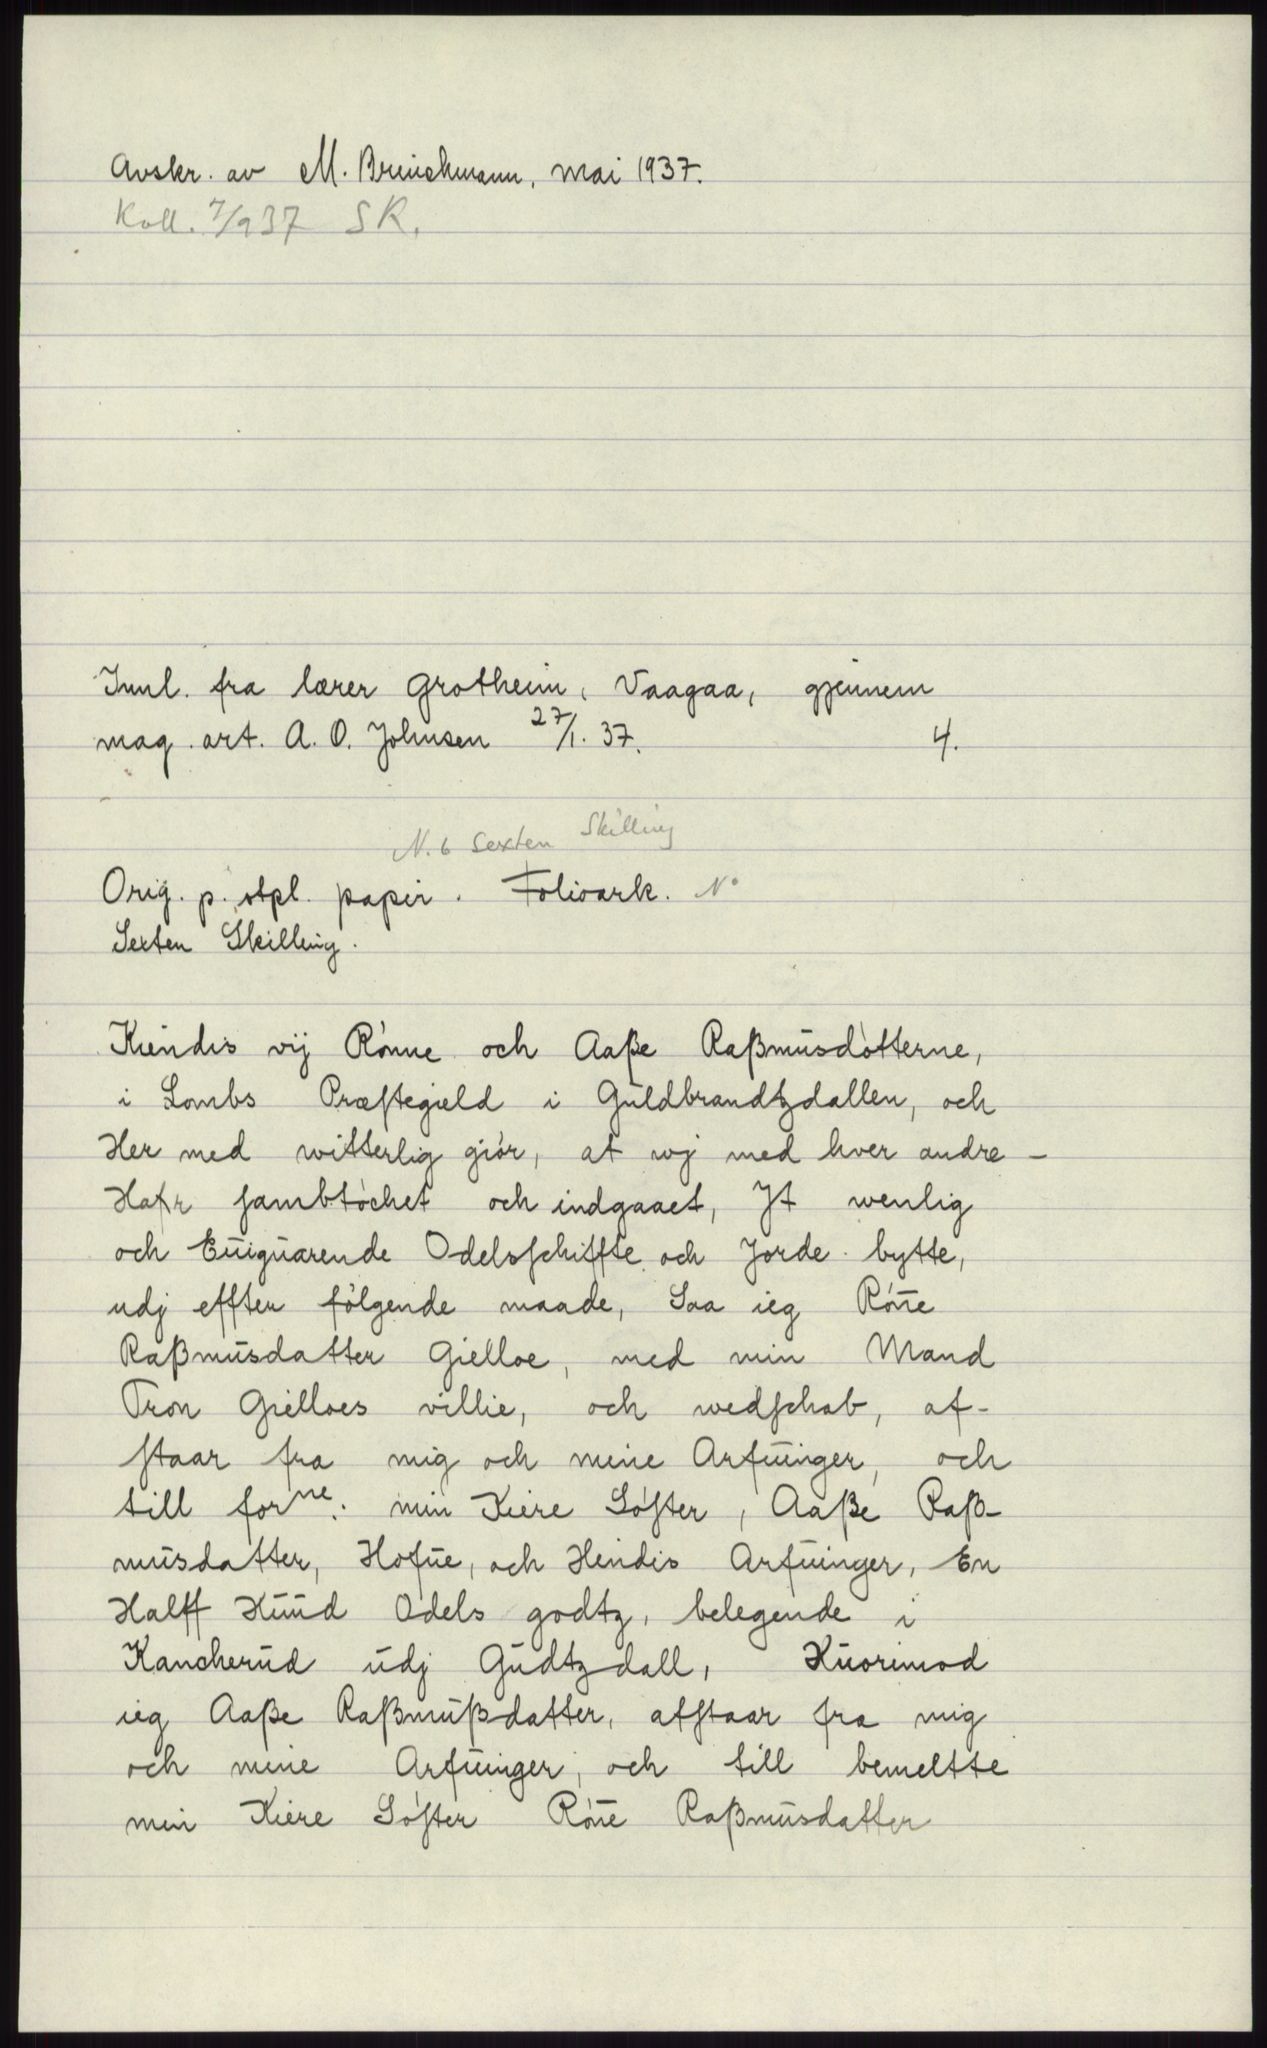 Avskr. av M. Brinchmann, mai 1937.
Koll. 7/937 SR.
Innl. fra lærer Grotheim, Vaagaa, gjennem
mag. art. A. O. Johnsen 27/1. 37. 4.
N. 6 Sexten Skilling
Orig. p. stpl. papir. Folioark. No
Sexten Skilling.
Kiendis vij Rónne och Aaße Raßmusdótterne,
i Lombs Præstegield i Guldbrandtzdallen, och
Her med witterlig giór, at wj med hver andre -
Hafr sambtóchet och indgaaet, It wenlig
och Euiguarende Odelsschiffte och Jorde bytte,
udj effter fólgende maade, Saa ieg Róñe
Raßmusdatter Gielloe, med min Mand
Tron Gielloes villie, och wedschab, af-
staar fra mig och mine Arfuinger, och
till forne: min Kiere Sóster, Aaße Raß-
musdatter, Hofue, och Hendis Arfuinger, En
Halff Huud Odels godtz, belegende i
Kancherud udj Gudtzdall, Huorimod
ieg Aaße Raßmußdatter, afstaar fra mig
och mine Arfuinger, och till bemeltte
min Kiere Sóster Róñe Raßmusdatter